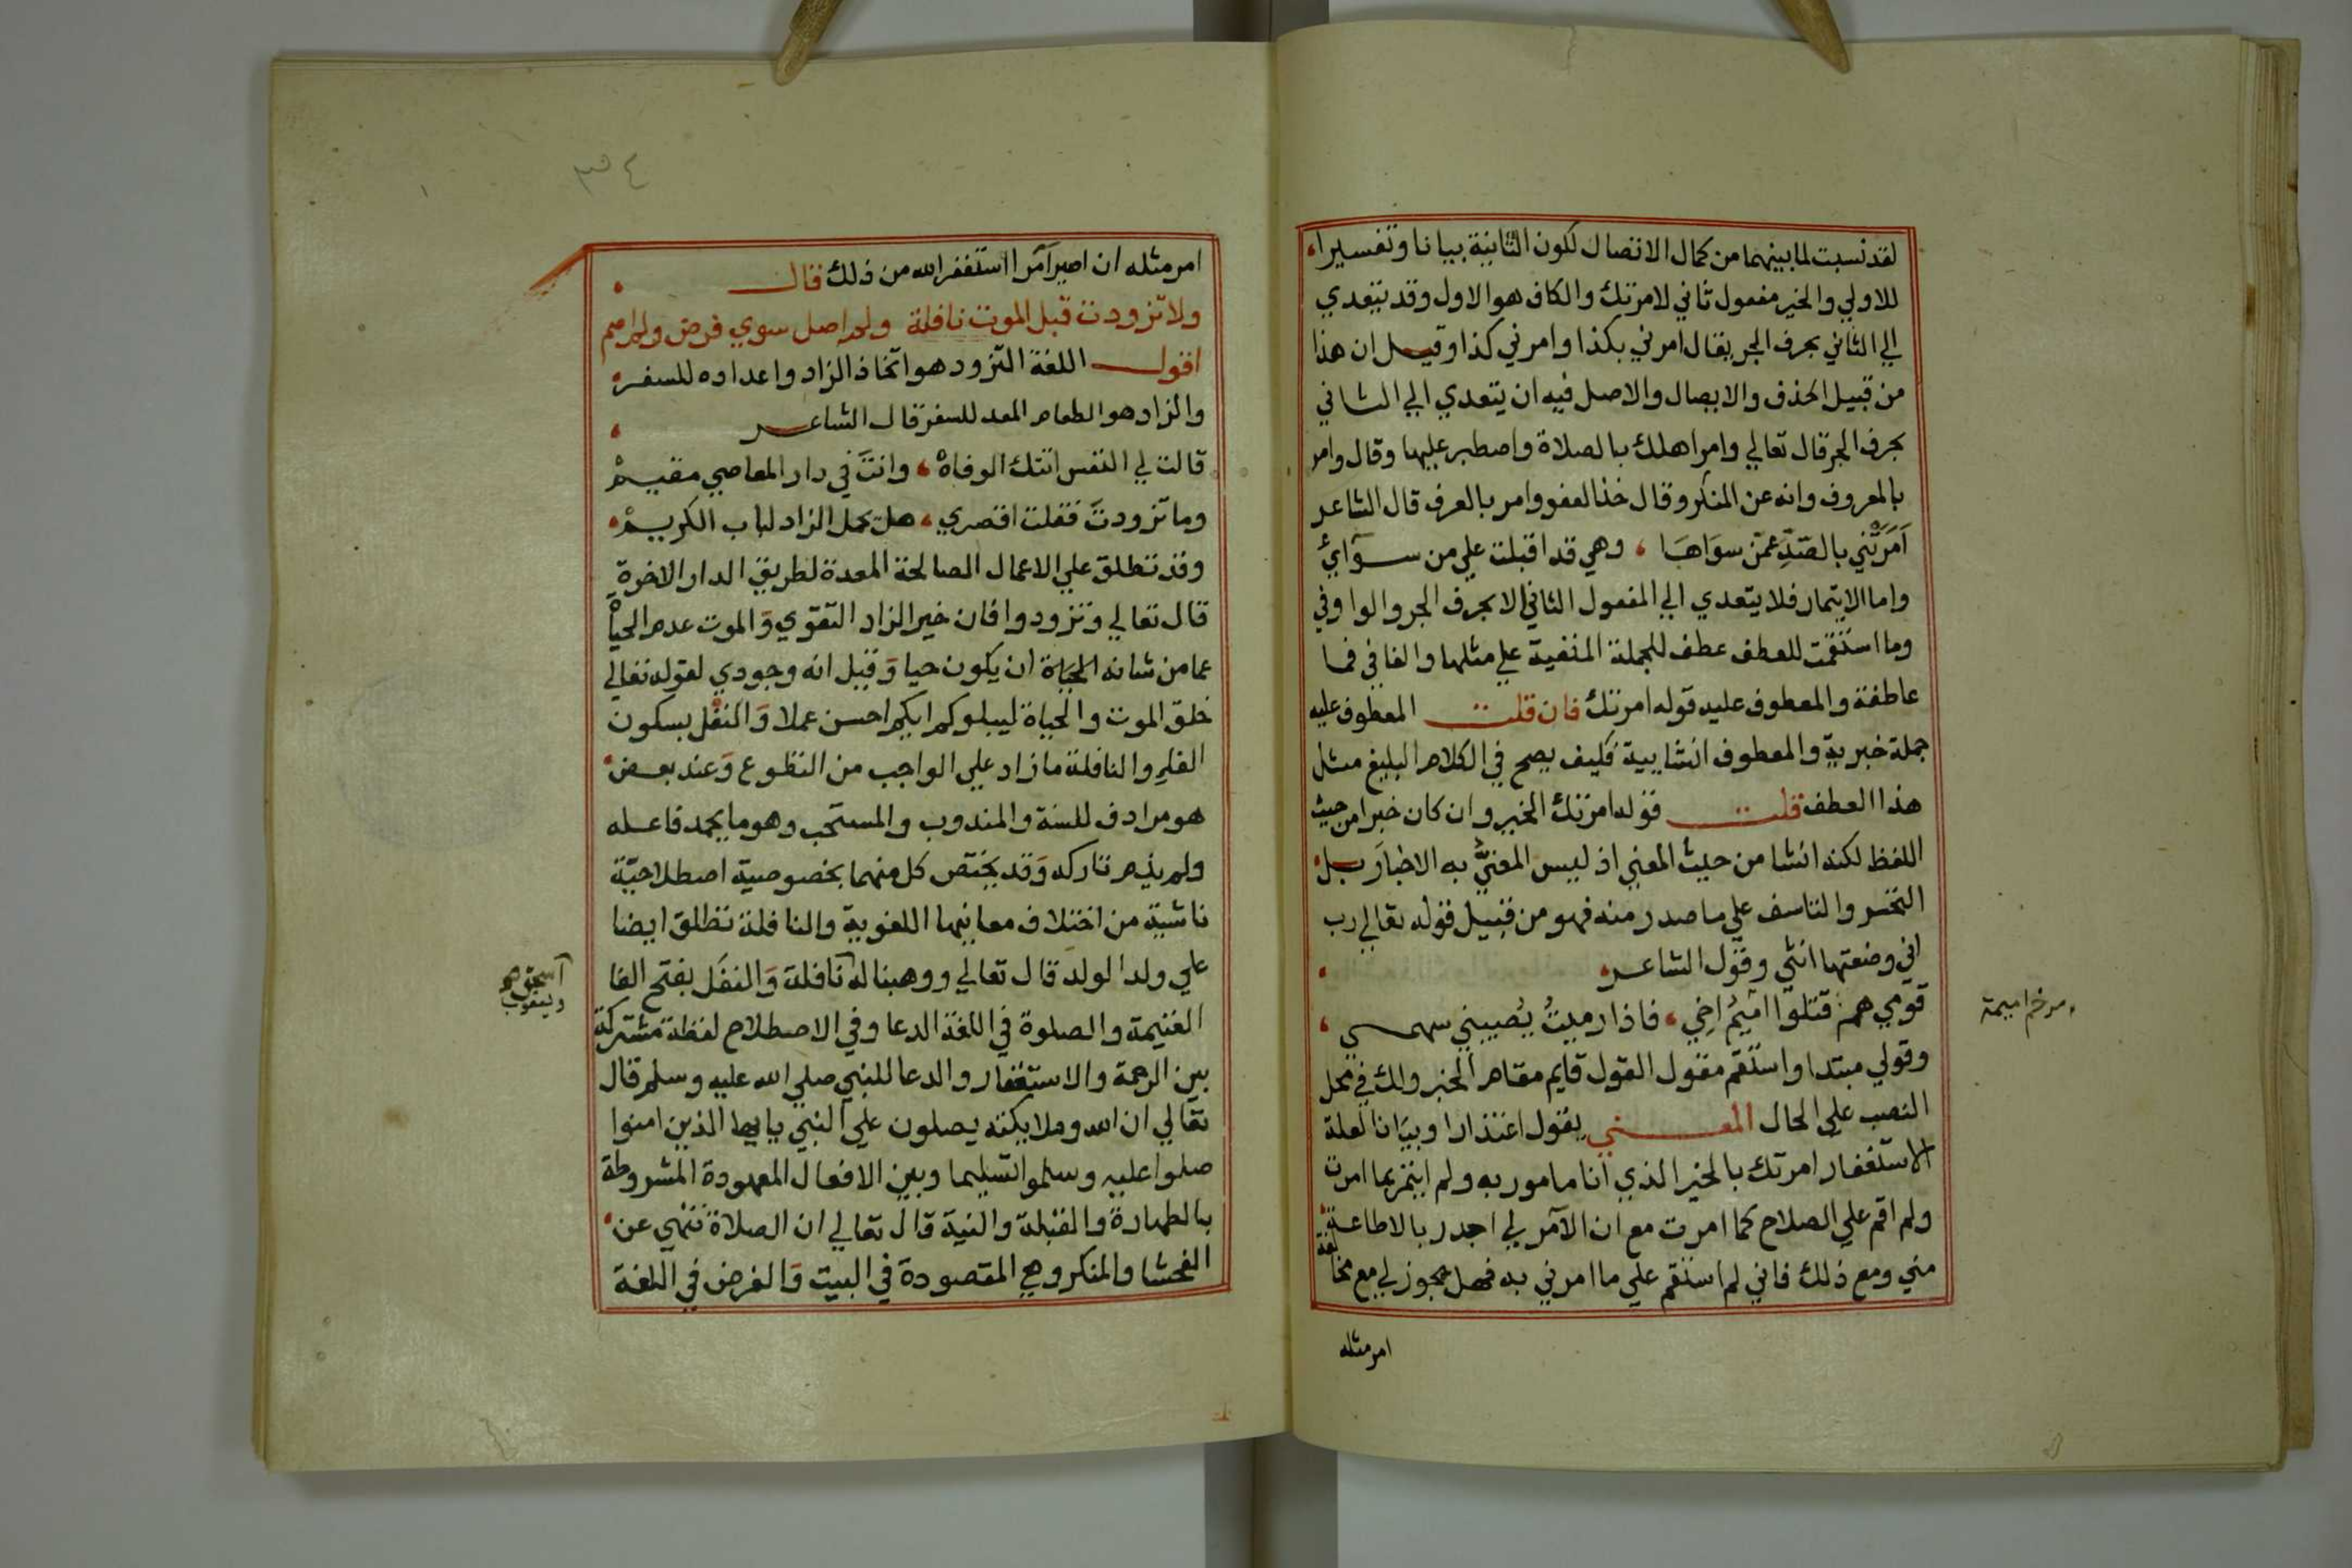 لقد نسبت لما بينهما من كمال الاتصال لكون الثانية بيانا وتفسيرا
للاولي والخير مفعول ثاني لامرتك والكاف هو الاول وقد يتعدي
الي الثاني بحرف الجر يقال امرني بكذا وامرني كذا وقيل ان هذا
من قبيل الحذف والايصال والاصل فيه ان يتعدي الي الثاني
بحرف الجر قال تعالي وامر اهلك بالصلاة واصطبر عليها وقال وامر
بالمعروف وانه عن المنكر وقال خذ العفو وامر بالعرف قال الشاعر
اَمَرَتْني بالصَدِّ عمّن سوَاهَا وهي قد اقبلت علي من سوآئي
واما الايتمار فلا يتعدي الي المفعول الثاني الا بحرف الجر والواو في
وما استقمت للعطف عطف للجملة المنفية علي مثلها والفا في فما
عاطفة والمعطوف عليه قوله امرتك فان قلت المعطوف عليه
جملة خبرية والمعطوف انشايية فكيف يصح في الكلام البليغ مثل
هذا العطف قلت قوله امرتك الخير وان كان خبرا من حيث
اللفظ لكنه انشا من حيث المعني اذ ليس المعنيُّ به الاخبار بل
التحسر والتاسف علي ما صدر منه فهو من قبيل قوله تعالي رب
اني وضعتها انثي وقول الشاعر
قومي هم قتلوا اميمُ اخِي فاذا رميتُ يُصيبني سهمي
ومرخم اميمة
وقولي مبتدا واستقم مقول القول قايم مقام الخبر ولك في محل
النصب علي الحال المعني يقول اعتذارا وبيَانا لعلة
الاستغفار امرتك بالخير الذي انا مامور به ولم ايتمر بما امرت
ولم اقم علي الصلاح كما امرت مع ان الآمر لي اجدر بالاطاعة
مني ومع ذلك فاني لم استقم علي ما امرني به فهل يجوز لي مع مخالفة
امر مثله
٣٤
امر مثله ان اصير آمرا استغفر الله من ذلك قال
ولا تزودت قبل الموت نافلة ولم اصل سوي فرض ولم اصم
اقول اللغة التزود هو اتخاذ الزاد واعداده للسفر
والزاد هو الطعام المعد للسفر قال الشاعر
قالت لي النفس اتتك الوفاهْ وانتَ في دار المعاصي مقيمْ
وما تزودتَ فقلت اقصري هل يحمل الزاد لباب الكريمْ
وقد تطلق علي الاعمال الصالحة المعدة لطريق الدار الاخرة
قال تعالي وتزودوا فان خير الزاد التقوي وَالموت عدم الحياة
عما من شانه الحيَاة ان يكون حيا وَقيل انه وجودي لقوله تعالي
خلق الموت والحياة ليبلوكم ايكم احسن عملا وَالنفْل بسكون
الفاء والنافلة ما زاد علي الواجب من التطوع وَعند بعض
هو مرادف للسنة والمندوب والمستحب وهو ما يحمد فاعله
ولم يذم تاركه وَقد يختص كل منهما بخصوصية اصطلاحيّة
ناشية من اختلاف معانيها اللغوية والنافلة تطلق ايضا
علي ولد الولد قال تعالي ووهبنا له نافلة وَالنفَل بفتح الفا
اسحق ويعقوب
الغنيمة والصلوة في اللغة الدعا وفي الاصطلاح لفظة مشتركة
بين الرحمة والاستغفار والدعا للنبي صلي الله عليه وسلم قال
تعالي ان الله وملايكته يصلون علي النبي يايها الذين امنوا
صلوا عليه وسلموا تسليما وبين الافعال المعهودة المشروطة
بالطهارة والقبلة والنية قال تعالي ان الصلاة تنهي عن
الفحشا والمنكر وهي المقصودة في البيت وَالفرض في اللغة